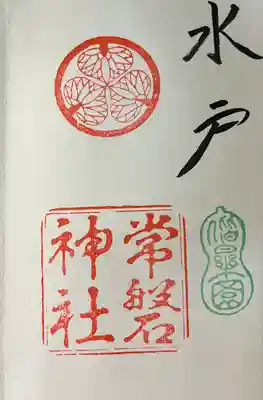 水戸
常磐
神社
偕楽園